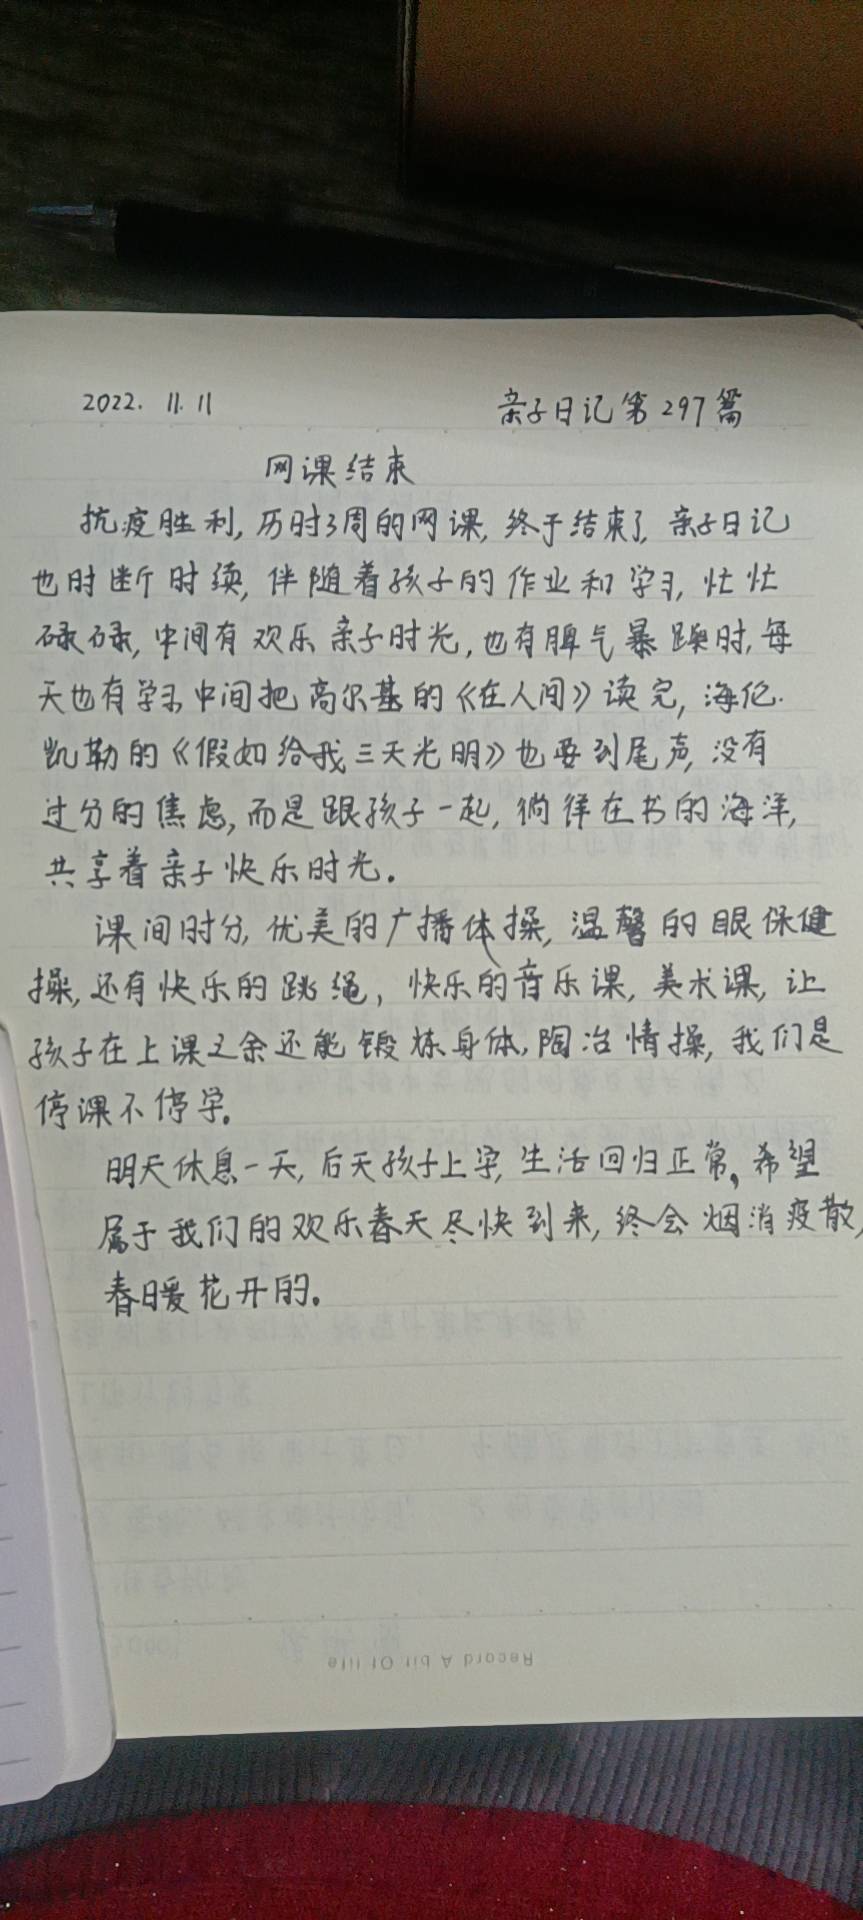 2022. 11. 11 亲子日记第297篇
网课结束
抗疫胜利,历时3周的网课,终于结束了,亲子日记
也时断时续,伴随着孩子的作业和学习,忙忙
碌碌,中间有欢乐亲子时光,也有脾气暴躁时,每
天也有学习,中间把高尔基的《在人间》读完,海伦·
凯勒的《假如给我三天光明》也要到尾声,没有
过分的焦虑,而是跟孩子一起,徜徉在书的海洋,
共享着亲子快乐时光.
课间时分,优美的广播体操,温馨的眼保健
操,还有快乐的跳绳,快乐的音乐课,美术课,让
孩子在上课之余还能锻炼身体,陶冶情操,我们是
停课不停学.
明天休息一天,后天孩子上学,生活回归正常,希望
属于我们的欢乐春天尽快到来,终会烟消疫散,
春暖花开的.
Record A bit Of life